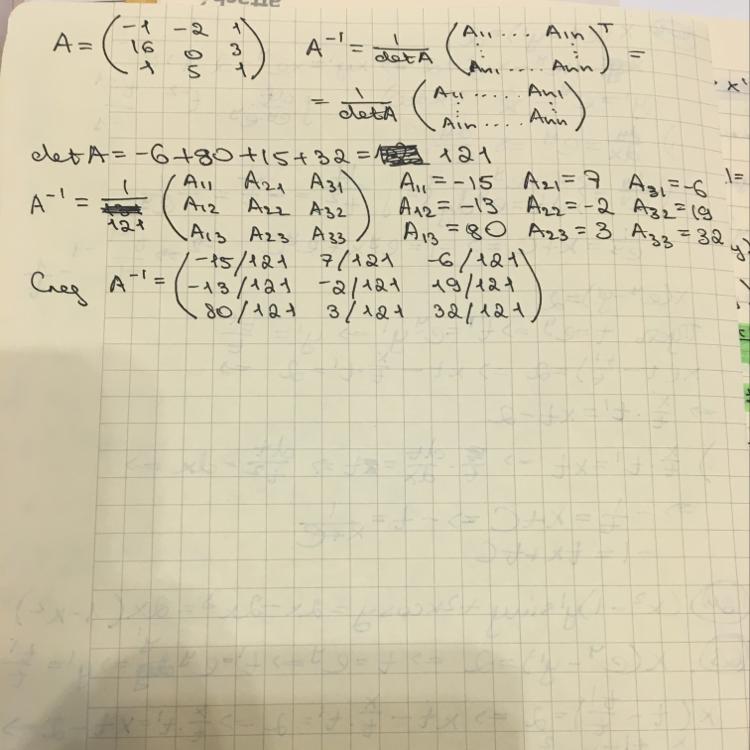 A = (-1 -2 1
16 0 3
1 5 1) A⁻¹ = 1/detA (A₁₁ .... A₁n
⋮ ⋮
An₁ .... Ann)ᵀ =
= 1/detA (A₁₁ ..... An₁
⋮ ⋮
A₁n .... Ann)
det A = -6+80+15+32 = 121
A⁻¹ = 1/121 (A₁₁ A₂₁ A₃₁
A₁₂ A₂₂ A₃₂
A₁₃ A₂₃ A₃₃) A₁₁ = -15 A₂₁ = 7 A₃₁ = -6
A₁₂ = -13 A₂₂ = -2 A₃₂ = 19
A₁₃ = 80 A₂₃ = 3 A₃₃ = 32
След A⁻¹ = (-15/121 7/121 -6/121
-13/121 -2/121 19/121
80/121 3/121 32/121)